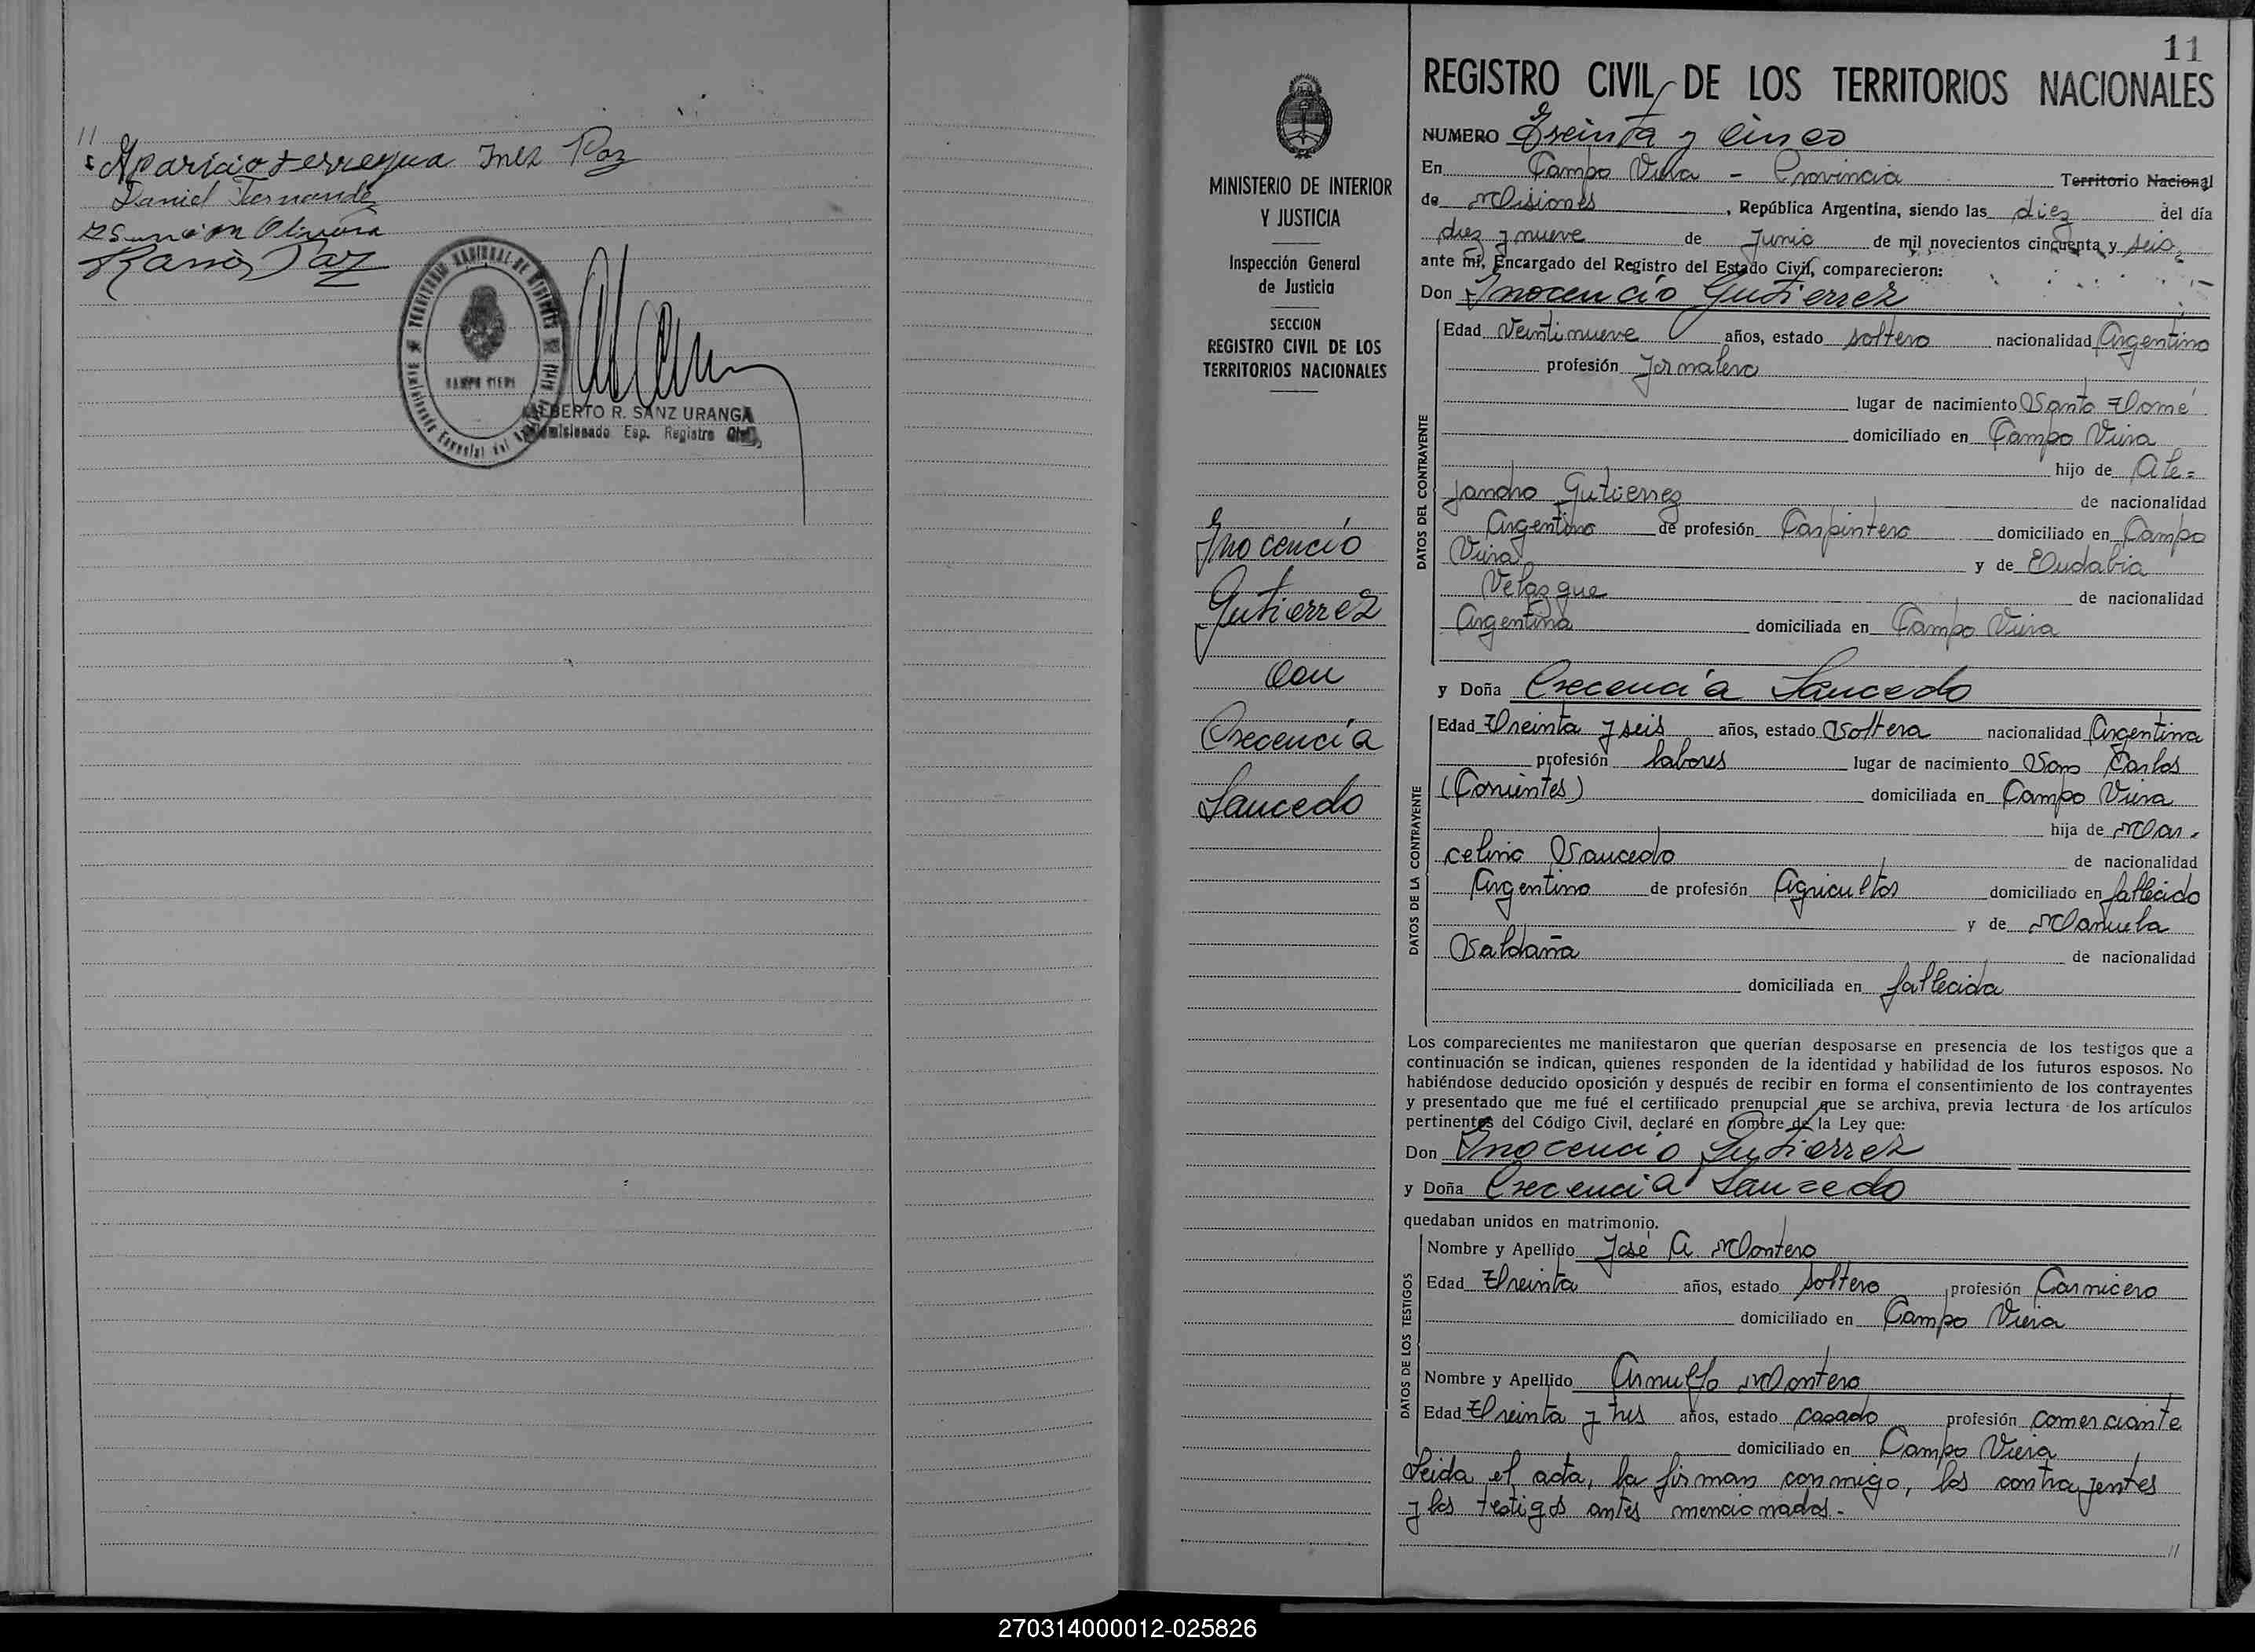 //
Aparicio Ferreyra Inez Paz
Daniel Fernande
Asunción Olivera
Ramòn Paz
TERRITORIO NACIONAL DE MISIONES
CAMPO VIERA
ALBERTO R. SANZ URANGA
Comisionado Esp. Registro Civil
11
MINISTERIO DE INTERIOR
Y JUSTICIA
Inspección General
de Justicia
SECCION
REGISTRO CIVIL DE LOS
TERRITORIOS NACIONALES
Inocencio
Gutierrez
Con
Crecencia
Saucedo
REGISTRO CIVIL DE LOS TERRITORIOS NACIONALES
NUMERO Treinta y Cinco
En Campo Viera - Provincia Territorio Nacional
de Misiones, República Argentina, siendo las diez del día
diez y nueve de Junio de mil novecientos cincuenta y seis,
ante mí, Encargado del Registro del Estado Civil, comparecieron:
Don Inocencio Gutierrez
DATOS DEL CONTRAYENTE
Edad Veintinueve años, estado soltero nacionalidad Argentino
profesión Jornalero
lugar de nacimiento Santo Tomé
domiciliado en Campo Viera
hijo de Ale=
jandro Gutierrez de nacionalidad
Argentino de profesión Carpintero domiciliado en Campo
Viera y de Eudabia
Velazque de nacionalidad
Argentina domiciliada en Campo Viera
y Doña Crecencia Saucedo
DATOS DE LA CONTRAYENTE
Edad Treinta y seis años, estado Soltera nacionalidad Argentina
profesión labores lugar de nacimiento San Carlos
(Corrientes) domiciliada en Campo Viera
hija de Mar-
celino Saucedo de nacionalidad
Argentino de profesión Agricultor domiciliado en fallecido
y de Manuela
Saldaña de nacionalidad
domiciliada en fallecida
Los comparecientes me manifestaron que querían desposarse en presencia de los testigos que a
continuación se indican, quienes responden de la identidad y habilidad de los futuros esposos. No
habiéndose deducido oposición y después de recibir en forma el consentimiento de los contrayentes
y presentado que me fué el certificado prenupcial que se archiva, previa lectura de los artículos
pertinentes del Código Civil, declaré en nombre de la Ley que:
Don Inocencio Gutierrez
y Doña Crecencia Saucedo
quedaban unidos en matrimonio.
DATOS DE LOS TESTIGOS
Nombre y Apellido José A. Montero
Edad Treinta años, estado soltero profesión Carnicero
domiciliado en Campo Viera
Nombre y Apellido Arnulfo Montero
Edad Treinta y tres años, estado casado profesión comerciante
domiciliado en Campo Viera
Leida el acta, la firman conmigo, los contrayentes
y los testigos antes mencionados.-
//
270314000012-025826